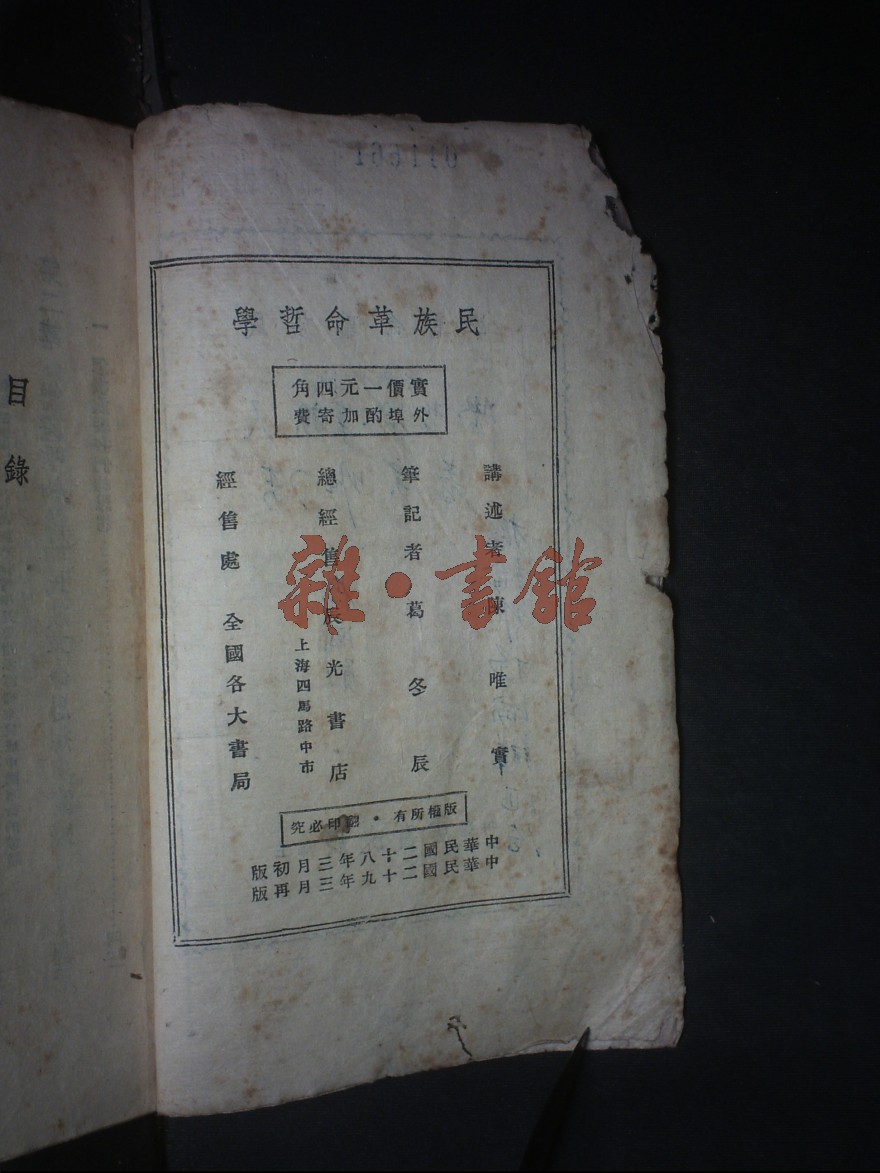 民族革命哲學
實價一元四角
外埠酌加寄費
講述者 陳唯實
筆記者 葛冬辰
總經售 辰光書店
上海四馬路中市
經售處 全國各大書局
版權所有·翻印必究
中華民國二十八年三月初版
中華民國二十九年三月再版
目錄
雜·書館
011661